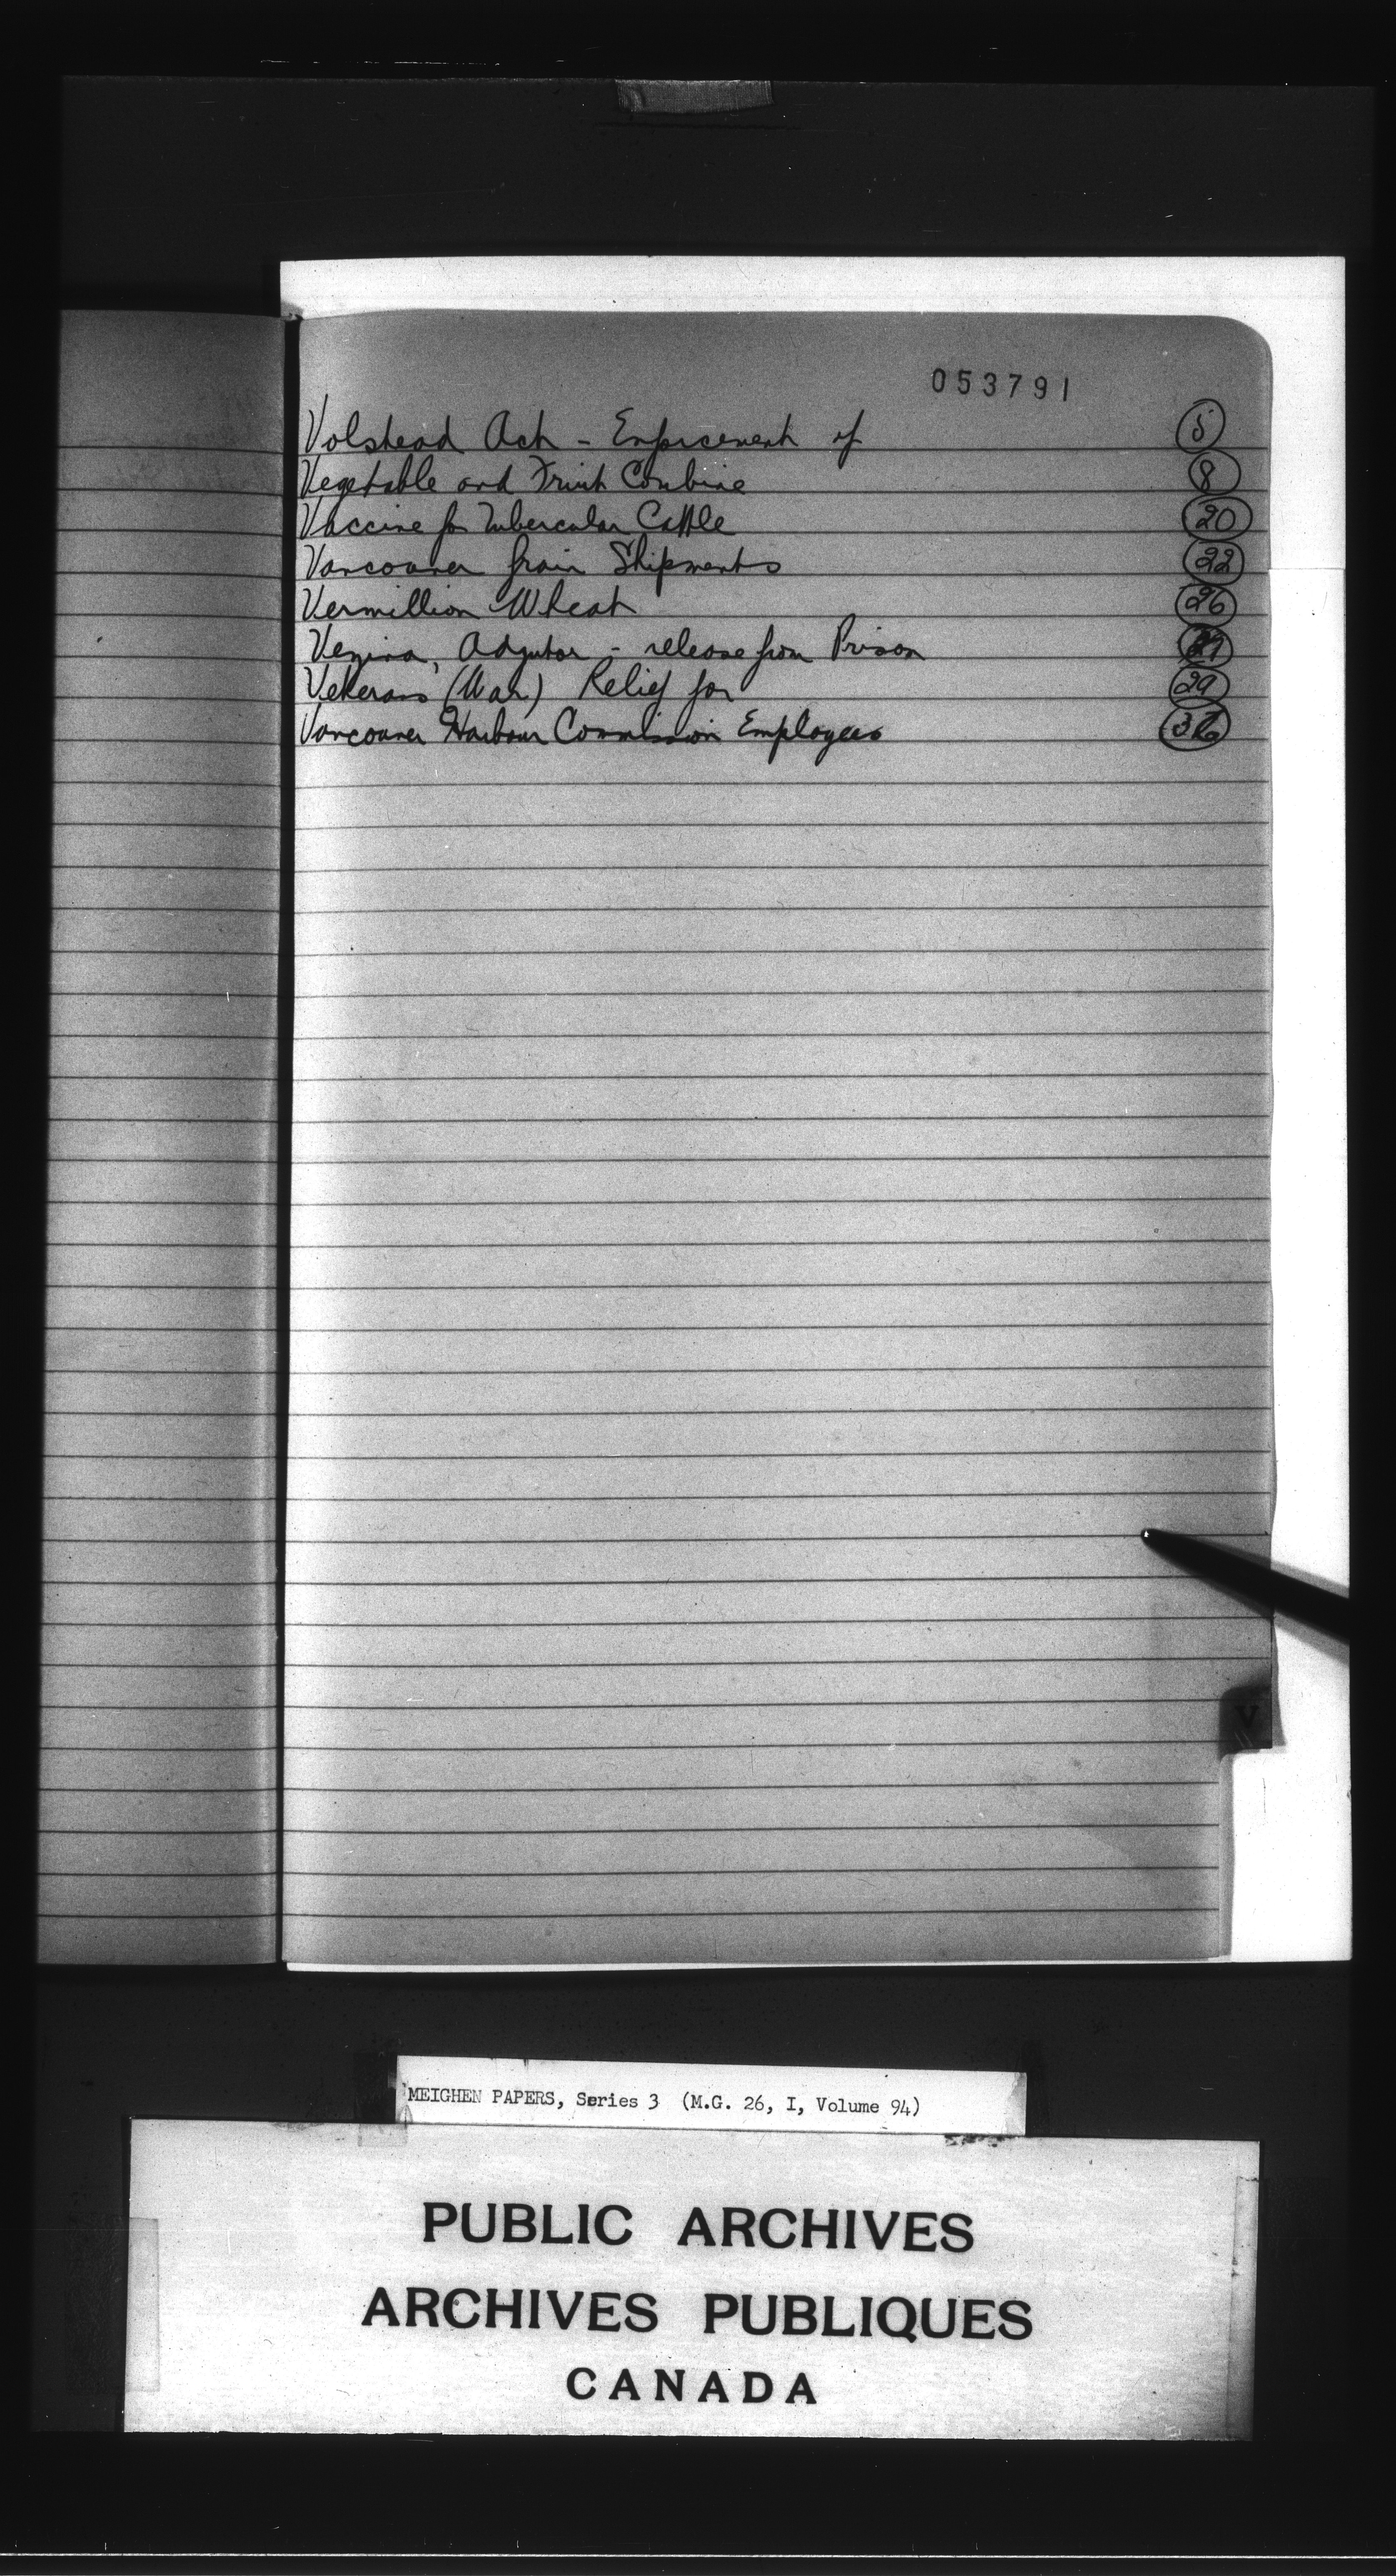 053791
Volstead Act - Enforcement of 5
Vegetable and Fruit Combine 8
Vaccine for Tubercular Cattle 20
Vancouver Grain Shipments 22
Vermillion Wheat 26
Vezina, Adjutor - release from Prison
Veterans (War) Relief for 29
Vancouver Harbour Commission Employees
V
MEIGHEN PAPERS, Series 3 (M.G. 26, I, Volume 94)
PUBLIC ARCHIVES
ARCHIVES PUBLIQUES
CANADA